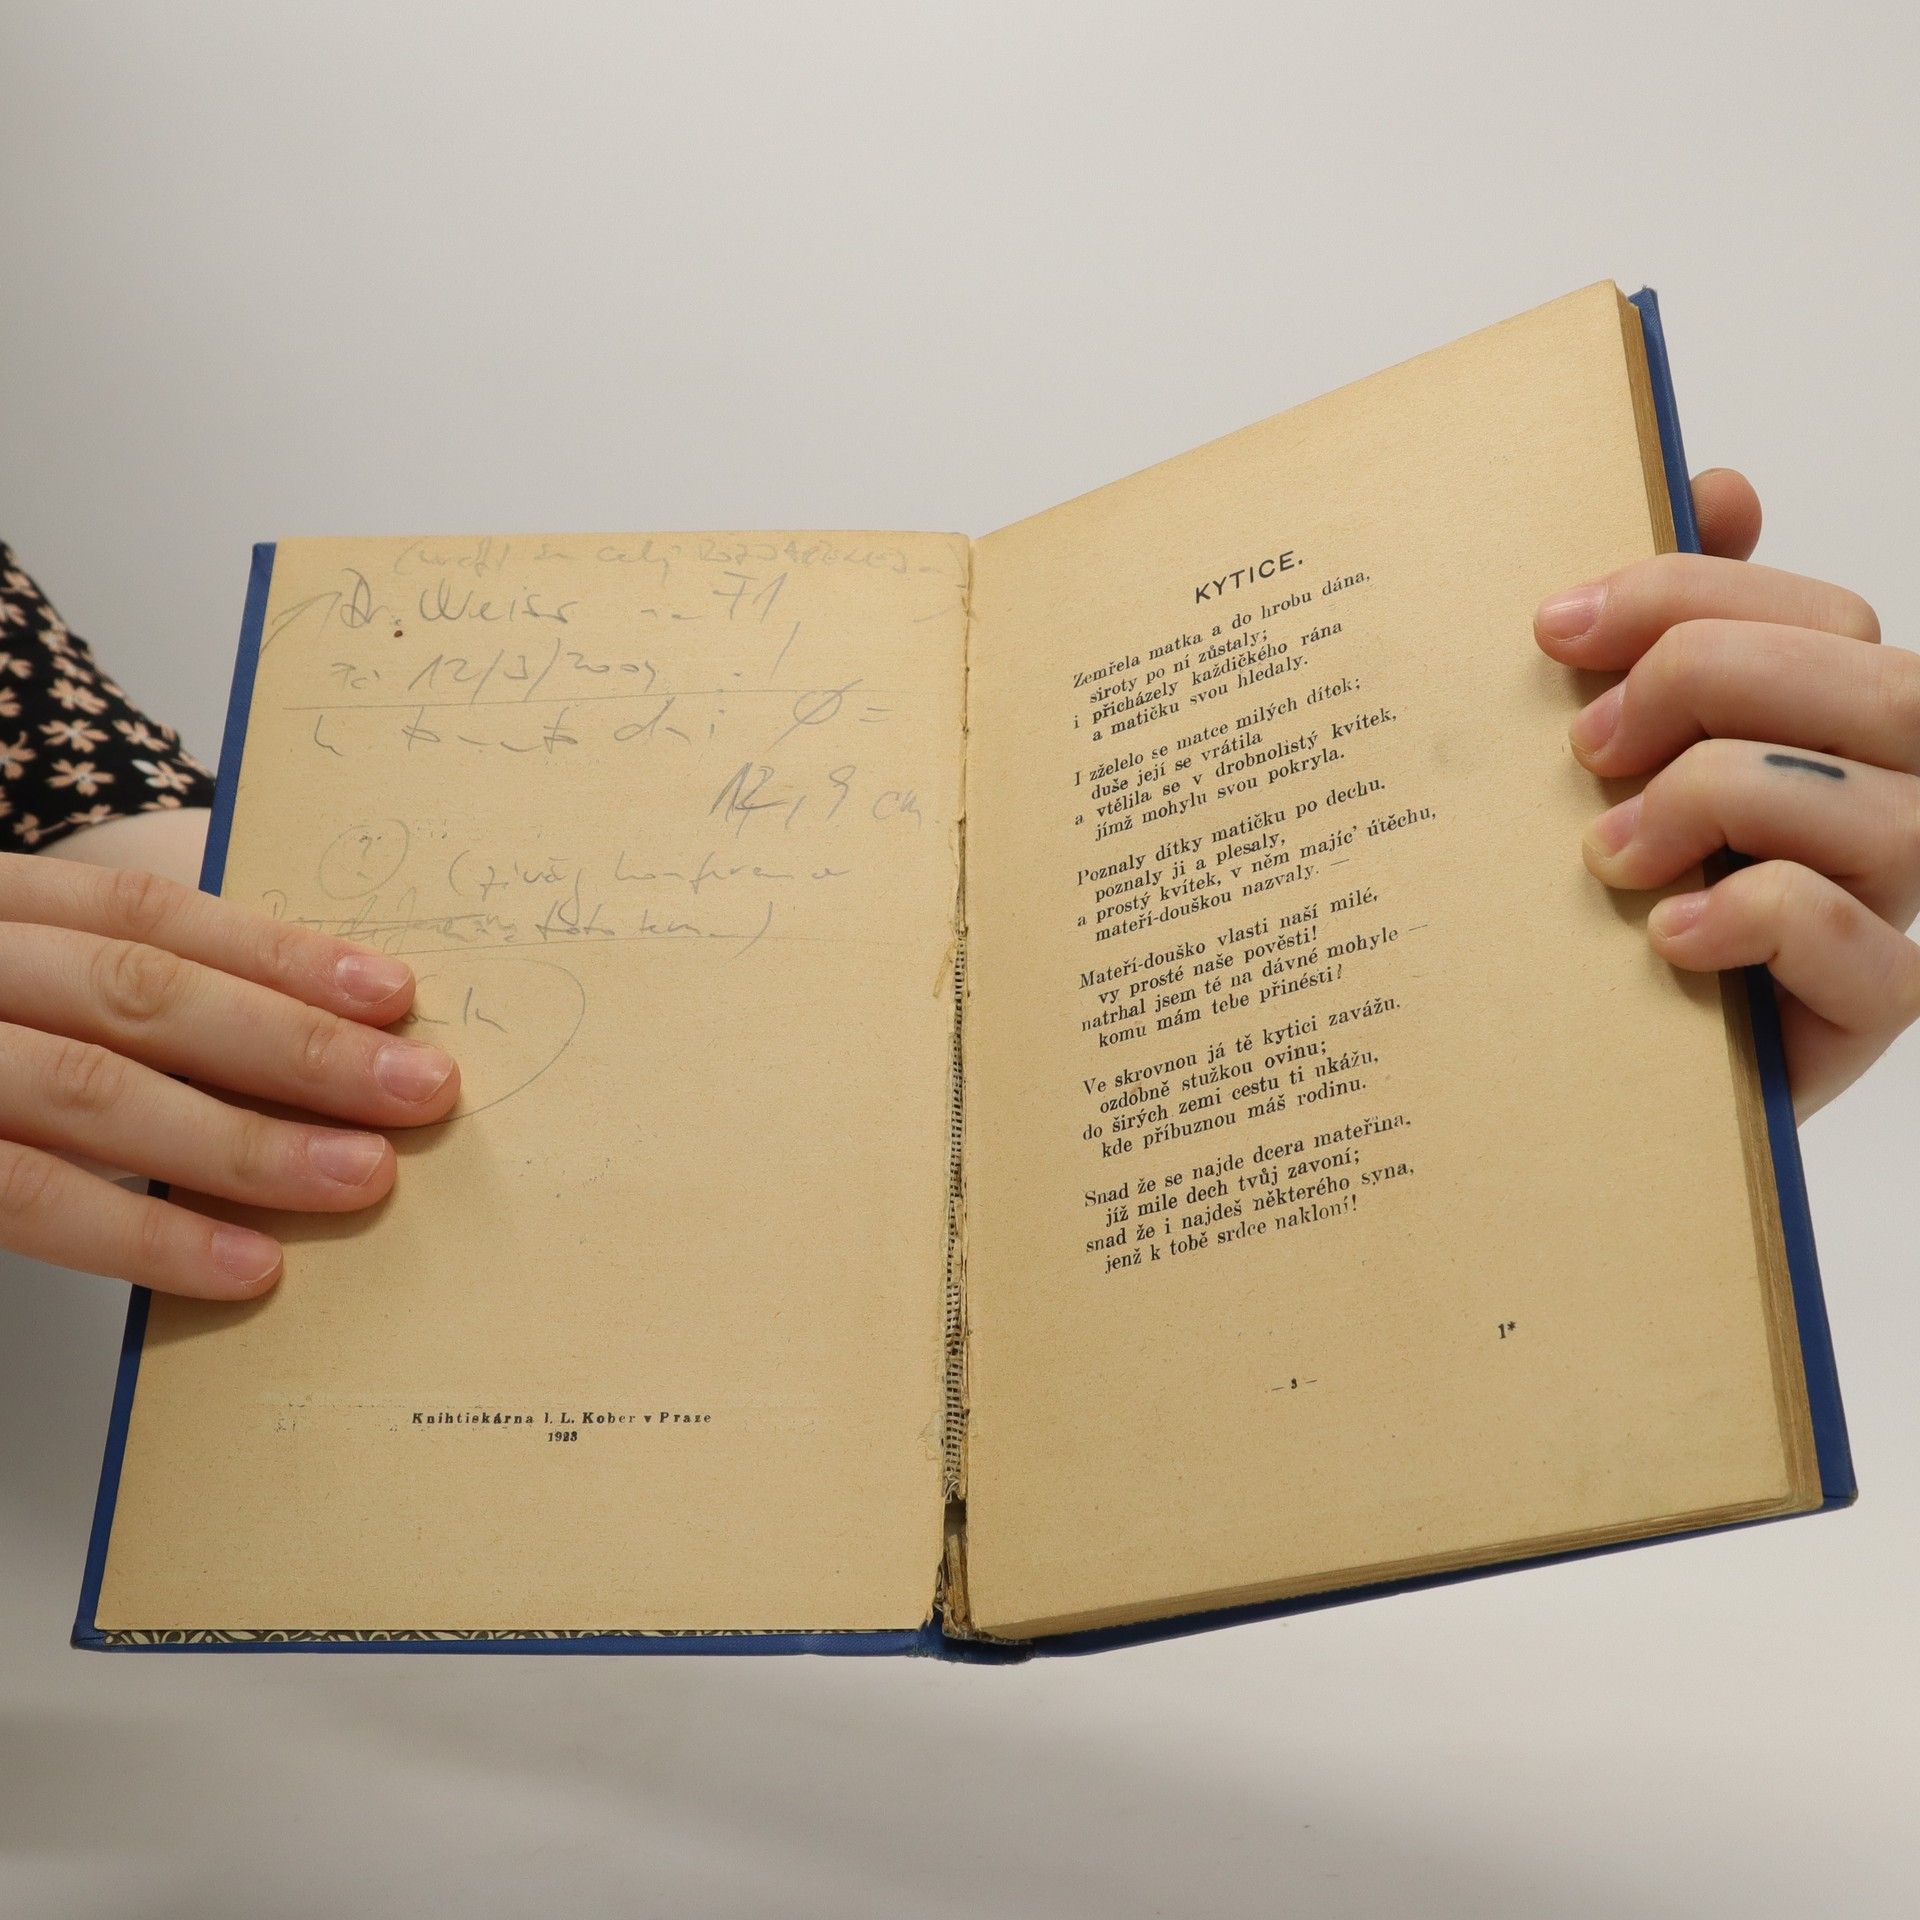 Dr. Weiss
12/3/2009
12,9 cm
Knihtiskárna I. L. Kober v Praze
1923
KYTICE.
Zemřela matka a do hrobu dána,
siroty po ní zůstaly;
i přicházely každičkého rána
a matičku svou hledaly.
I zželelo se matce milých dítek;
duše její se vrátila
a vtělila se v drobnolistý kvítek,
jímž mohylu svou pokryla.
Poznaly dítky matičku po dechu.
poznaly ji a plesaly,
a prostý kvítek, v něm majíc' útěchu,
mateří-douškou nazvaly. —
Mateří-douško vlasti naší milé,
vy prosté naše pověsti!
natrhal jsem tě na dávné mohyle —
komu mám tebe přinésti?
Ve skrovnou já tě kytici zavážu.
ozdobně stužkou ovinu;
do širých zemi cestu ti ukážu,
kde příbuznou máš rodinu.
Snad že se najde dcera mateřina,
jíž mile dech tvůj zavoní;
snad že i najdeš některého syna,
jenž k tobě srdce nakloní!
1*
— 3 —